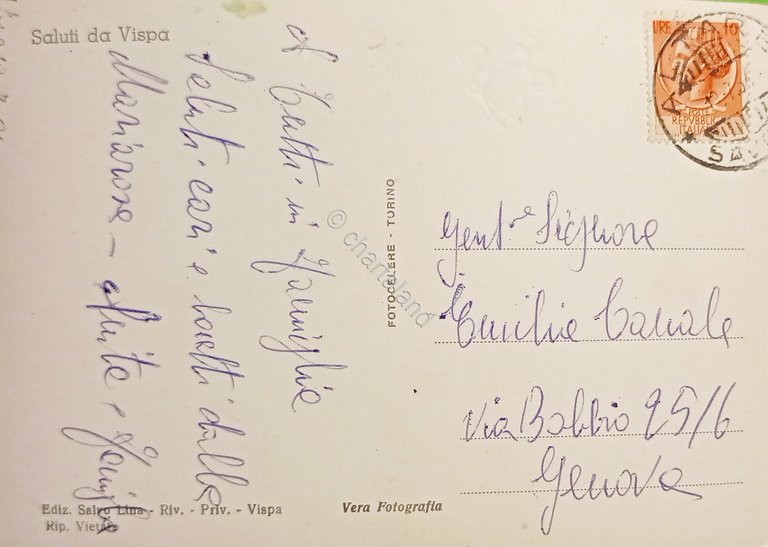 Saluti da Vispa
A Tutti in Famiglia
Saluti cari e bacetti dalla
Mariarosa - Anita e Famiglia
Ediz. Salvo Lina - Riv. - Priv. - Vispa
Rip. Vietata
Vera Fotografia
FOTOCELERE - TORINO
© chartaland
LIRE 10
POSTE
REPVBBLICA
ITALIANA
ALTARE
SAV
Gent.ma Signora
Emilia Canale
Via Bobbio 25/6
Genova